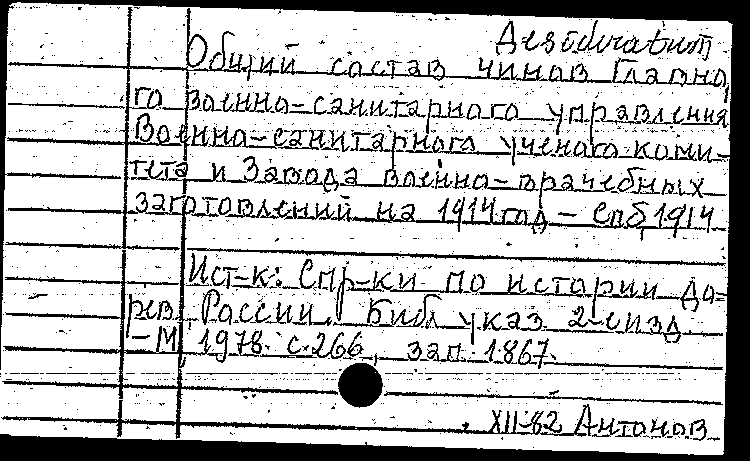 Desideratum
Общий состав чинов Главно
го Военно-санитарного управления
Военно-санитарного ученого коми-
тета и Завода военно-врачебных
заготовлений на 1914 год - Спб, 1914
Ист-к: Спр-ки по истории до=
рев. России. Библ указ 2-е изд
- М, 1978. с. 266, зап 1867.
XII-82 Антонов